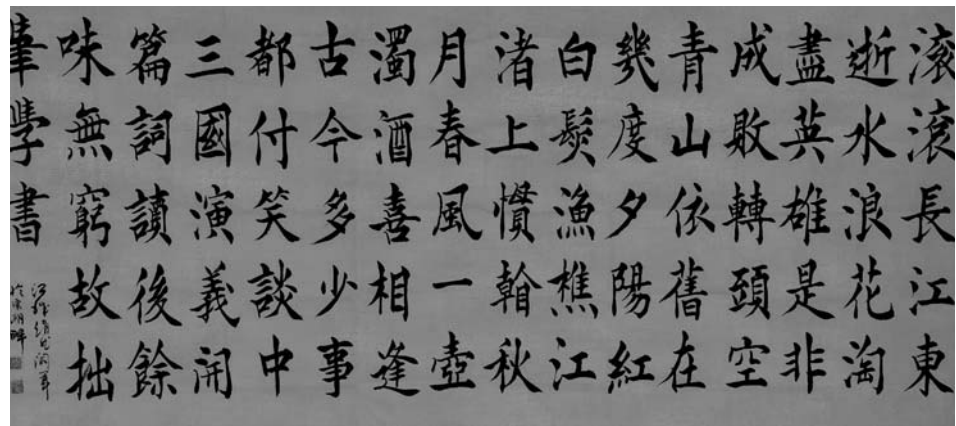 滚滾長江東
逝水浪花淘
盡英雄是非
成敗轉頭空
青山依舊在
幾度夕陽紅
白髮漁樵江
渚上慣翰秋
月春風一壺
濁酒喜相逢
古今多少事
都付笑談中
三國演義開
篇詞讀後餘
味無窮故拙
筆學書